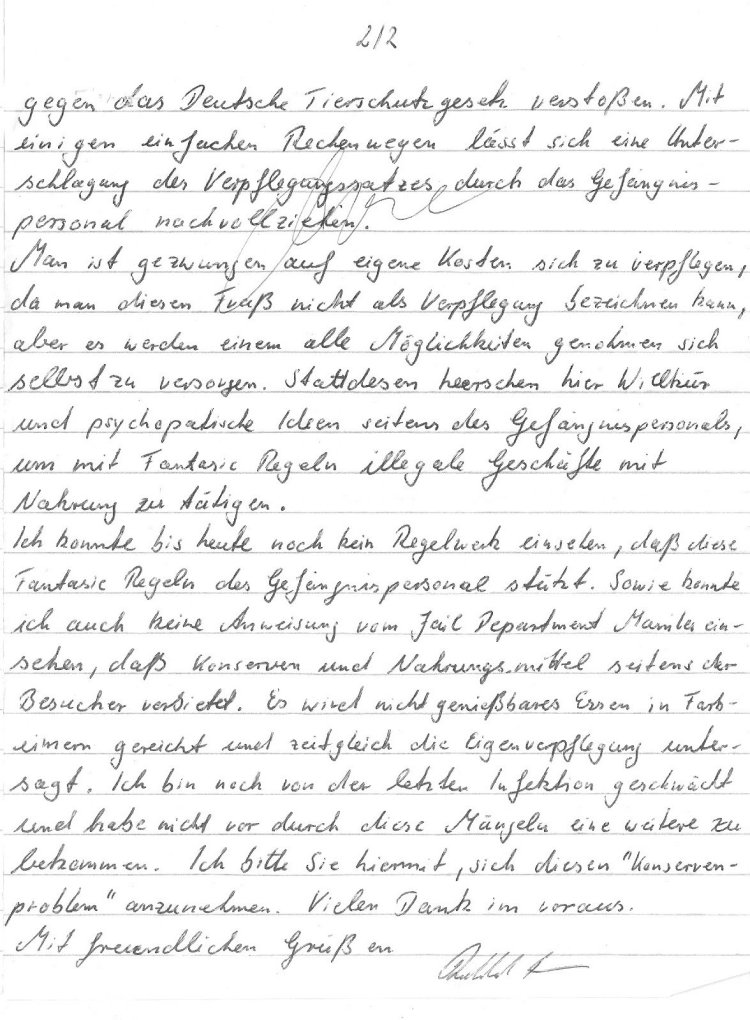 2/2
gegen das Deutsche Tierschutzgesetz verstoßen. Mit
einigen einfachen Rechenwegen lässt sich eine Unter-
schlagung des Verpflegungssatzes durch das Gefängnis-
personal nachvollziehen.
Man ist gezwungen auf eigene Kosten sich zu verpflegen,
da man diesen Fraß nicht als Verpflegung bezeichnen kann,
aber es werden einem alle Möglichkeiten genohmen sich
selbst zu versorgen. Stattdesen heerschen hier Willkür
und psychopatische Ideen seitens des Gefängnispersonals,
um mit Fantasie Regeln illegale Geschäfte mit
Nahrung zu tätigen.
Ich konnte bis heute noch kein Regelwerk einsehen, daß diese
Fantasie Regeln des Gefängnispersonal stützt. Sowie konnte
ich auch keine Anweisung vom Jail Department Manila ein-
sehen, daß Konserven und Nahrungsmittel seitens der
Besucher verbietet. Es wird nicht genießbares Essen in Farb-
eimern gereicht und zeitgleich die Eigenverpflegung unter-
sagt. Ich bin noch von der letzten Infektion geschwächt
und habe nicht vor durch diese Mängeln eine weitere zu
bekommen. Ich bitte Sie hiermit, sich diesen "Konserven-
problem" anzunehmen. Vielen Dank im voraus.
Mit freundlichen Grüßen